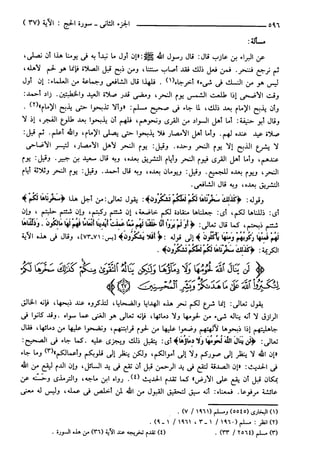 ٥٩٦ الجزء الثانى - سورة الحج : الآية (٣٧)
مسألة :
عن البراء بن عازب قال: قال رسول الله ﷺ: «إن أول ما نبدأ به فى يومنا هذا أن نصلى،
ثم نرجع فننحر. فمن فعل ذلك فقد أصاب سنتنا، ومن ذبح قبل الصلاة فإنما هو لحم قدمه لأهله،
ليس هو من النسك فى شىء» أخرجاه(١). فلهذا قال الشافعى وجماعة من العلماء: إن أول
وقت الأضحى إذا طلعت الشمس يوم النحر، ومضى قدر صلاة العيد والخطبتين. زاد أحمد:
وأن يذبح الإمام بعد ذلك، لما جاء فى صحيح مسلم: «وألا تذبحوا حتى يذبح الإمام»(٢).
وقال أبو حنيفة: أما أهل السواد من القرى ونحوهم، فلهم أن يذبحوا بعد طلوع الفجر، إذ لا
صلاة عيد عنده لهم. وأما أهل الأمصار فلا يذبحوا حتى يصلى الإمام، والله أعلم. ثم قيل:
لا يشرع الذبح إلا يوم النحر وحده. وقيل: يوم النحر لأهل الأمصار، لتيسر الأضاحى
عندهم، وأما أهل القرى فيوم النحر وأيام التشريق بعده، وبه قال سعيد بن جبير. وقيل: يوم
النحر، ويوم بعده للجميع. وقيل: ويومان بعده، وبه قال أحمد. وقيل: يوم النحر وثلاثة أيام
التشريق بعده، وبه قال الشافعى.
وقوله: ﴿كَذَلِكَ سَخَّرْنَاهَا لَكُمْ لَعَلَّكُمْ تَشْكُرُونَ﴾: يقول تعالى: من أجل هذا ﴿سَخَّرْنَاهَا لَكُمْ﴾
أى: ذللناها لكم، أى: جعلناها منقادة لكم خاضعة، إن شئتم ركبتم، وإن شئتم حلبتم، وإن
شئتم ذبحتم، كما قال تعالى: ﴿أَوَلَمْ يَرَوْا أَنَّا خَلَقْنَا لَهُم مِّمَّا عَمِلَتْ أَيْدِينَا أَنْعَامًا فَهُمْ لَهَا مَالِكُونَ . وَذَلَّلْنَاهَا
لَهُمْ فَمِنْهَا رَكُوبُهُمْ وَمِنْهَا يَأْكُلُونَ﴾ إلى قوله: ﴿أَفَلا يَشْكُرُونَ﴾ [يس:٧١، ٧٣]، وقال فى هذه الآية
الكريمة: ﴿كَذَلِكَ سَخَّرْنَاهَا لَكُمْ لَعَلَّكُمْ تَشْكُرُونَ﴾.
﴿لَن يَنَالَ اللَّهَ لُحُومُهَا وَلَا دِمَاؤُهَا وَلَكِن يَنَالُهُ التَّقْوَى مِنكُمْ كَذَلِكَ سَخَّرَهَا لَكُمْ
لِتُكَبِّرُوا اللَّهَ عَلَى مَا هَدَاكُمْ وَبَشِّرِ الْمُحْسِنِينَ ٣٧﴾
يقول تعالى: إنما شرع لكم نحر هذه الهدايا والضحايا، لتذكروه عند ذبحها، فإنه الخالق
الرازق لا أنه يناله شىء من لحومها ولا دمائها، فإنه تعالى هو الغنى عما سواه. وقد كانوا فى
جاهليتهم إذا ذبحوها لآلهتهم وضعوا عليها من لحوم قرابينهم، ونضحوا عليها من دمائها، فقال
تعالى: ﴿لَن يَنَالَ اللَّهَ لُحُومُهَا وَلا دِمَاؤُهَا﴾ أى: يتقبل ذلك ويجزى عليه، كما جاء فى الصحيح:
«إن الله لا ينظر إلى صوركم ولا إلى أموالكم، ولكن ينظر إلى قلوبكم وأعمالكم»(٣) وما جاء
فى الحديث: «إن الصدقة لتقع فى يد الرحمن قبل أن تقع فى يد السائل، وإن الدم ليقع من الله
بمكان قبل أن يقع على الأرض» كما تقدم الحديث(٤). رواه ابن ماجه، والترمذى وحسنه عن
عائشة مرفوعا. فمعناه: أنه سيق لتحقيق القبول من الله لمن أخلص فى عمله، وليس له معنى
(١) البخارى (٥٥٤٥) ومسلم (١٩٦١ / ٧) .
(٢) انظر : مسلم (١٩٦٠ / ١ - ٣ ، ١٩٦١ / ١ - ٩) .
(٣) مسلم (٢٥٦٤ / ٣٣) . (٤) تقدم تخريجه عند الآية (٣٦) من هذه السورة .